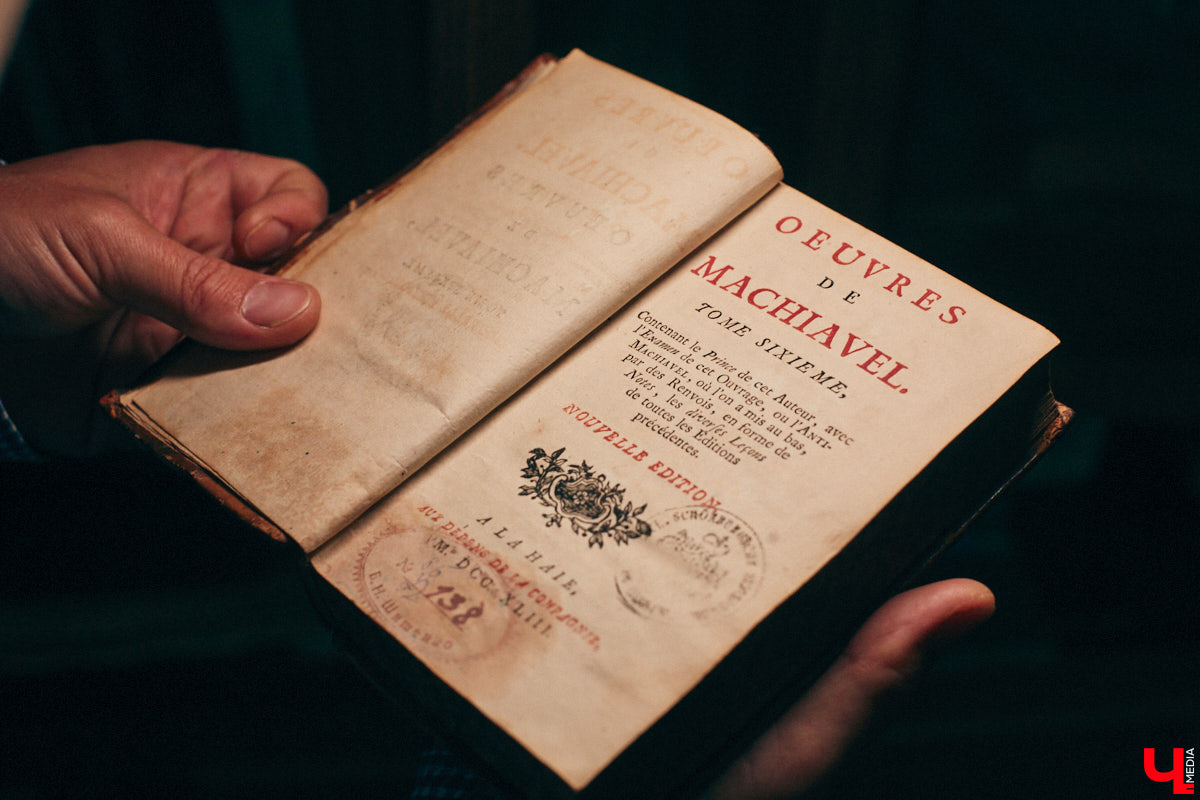 OEUVRES
DE
MACHIAVEL.
TOME SIXIEME,
Contenant le Prince de cet Auteur, avec
l'Examen de cet Ouvrage, ou l'ANTI-
MACHIAVEL, où l'on a mis au bas,
par des Renvois, en forme de
Notes, les diverses Leçons
de toutes les Editions
précédentes.
NOUVELLE EDITION
A LA HAIE,
AUX DEPENS DE LA COMPAGNIE,
M. DCC. XLIII.
№ 138
Ч
MEDIA